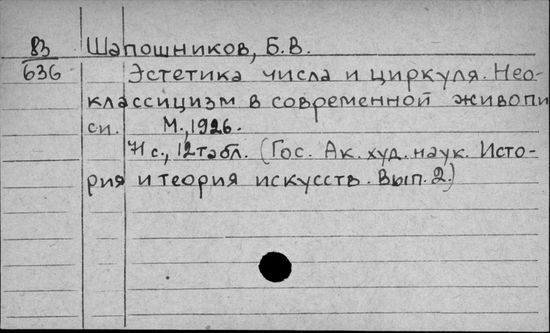 83 Шапошников, Б.В.
636 Эстетика числа и циркуля. Нео-
классицизм в современной живопи
си. М., 1926.
71 с., 12 табл. (Гос. Ак. худ. наук. Исто-
рия и теория искусств. Вып. 2.)